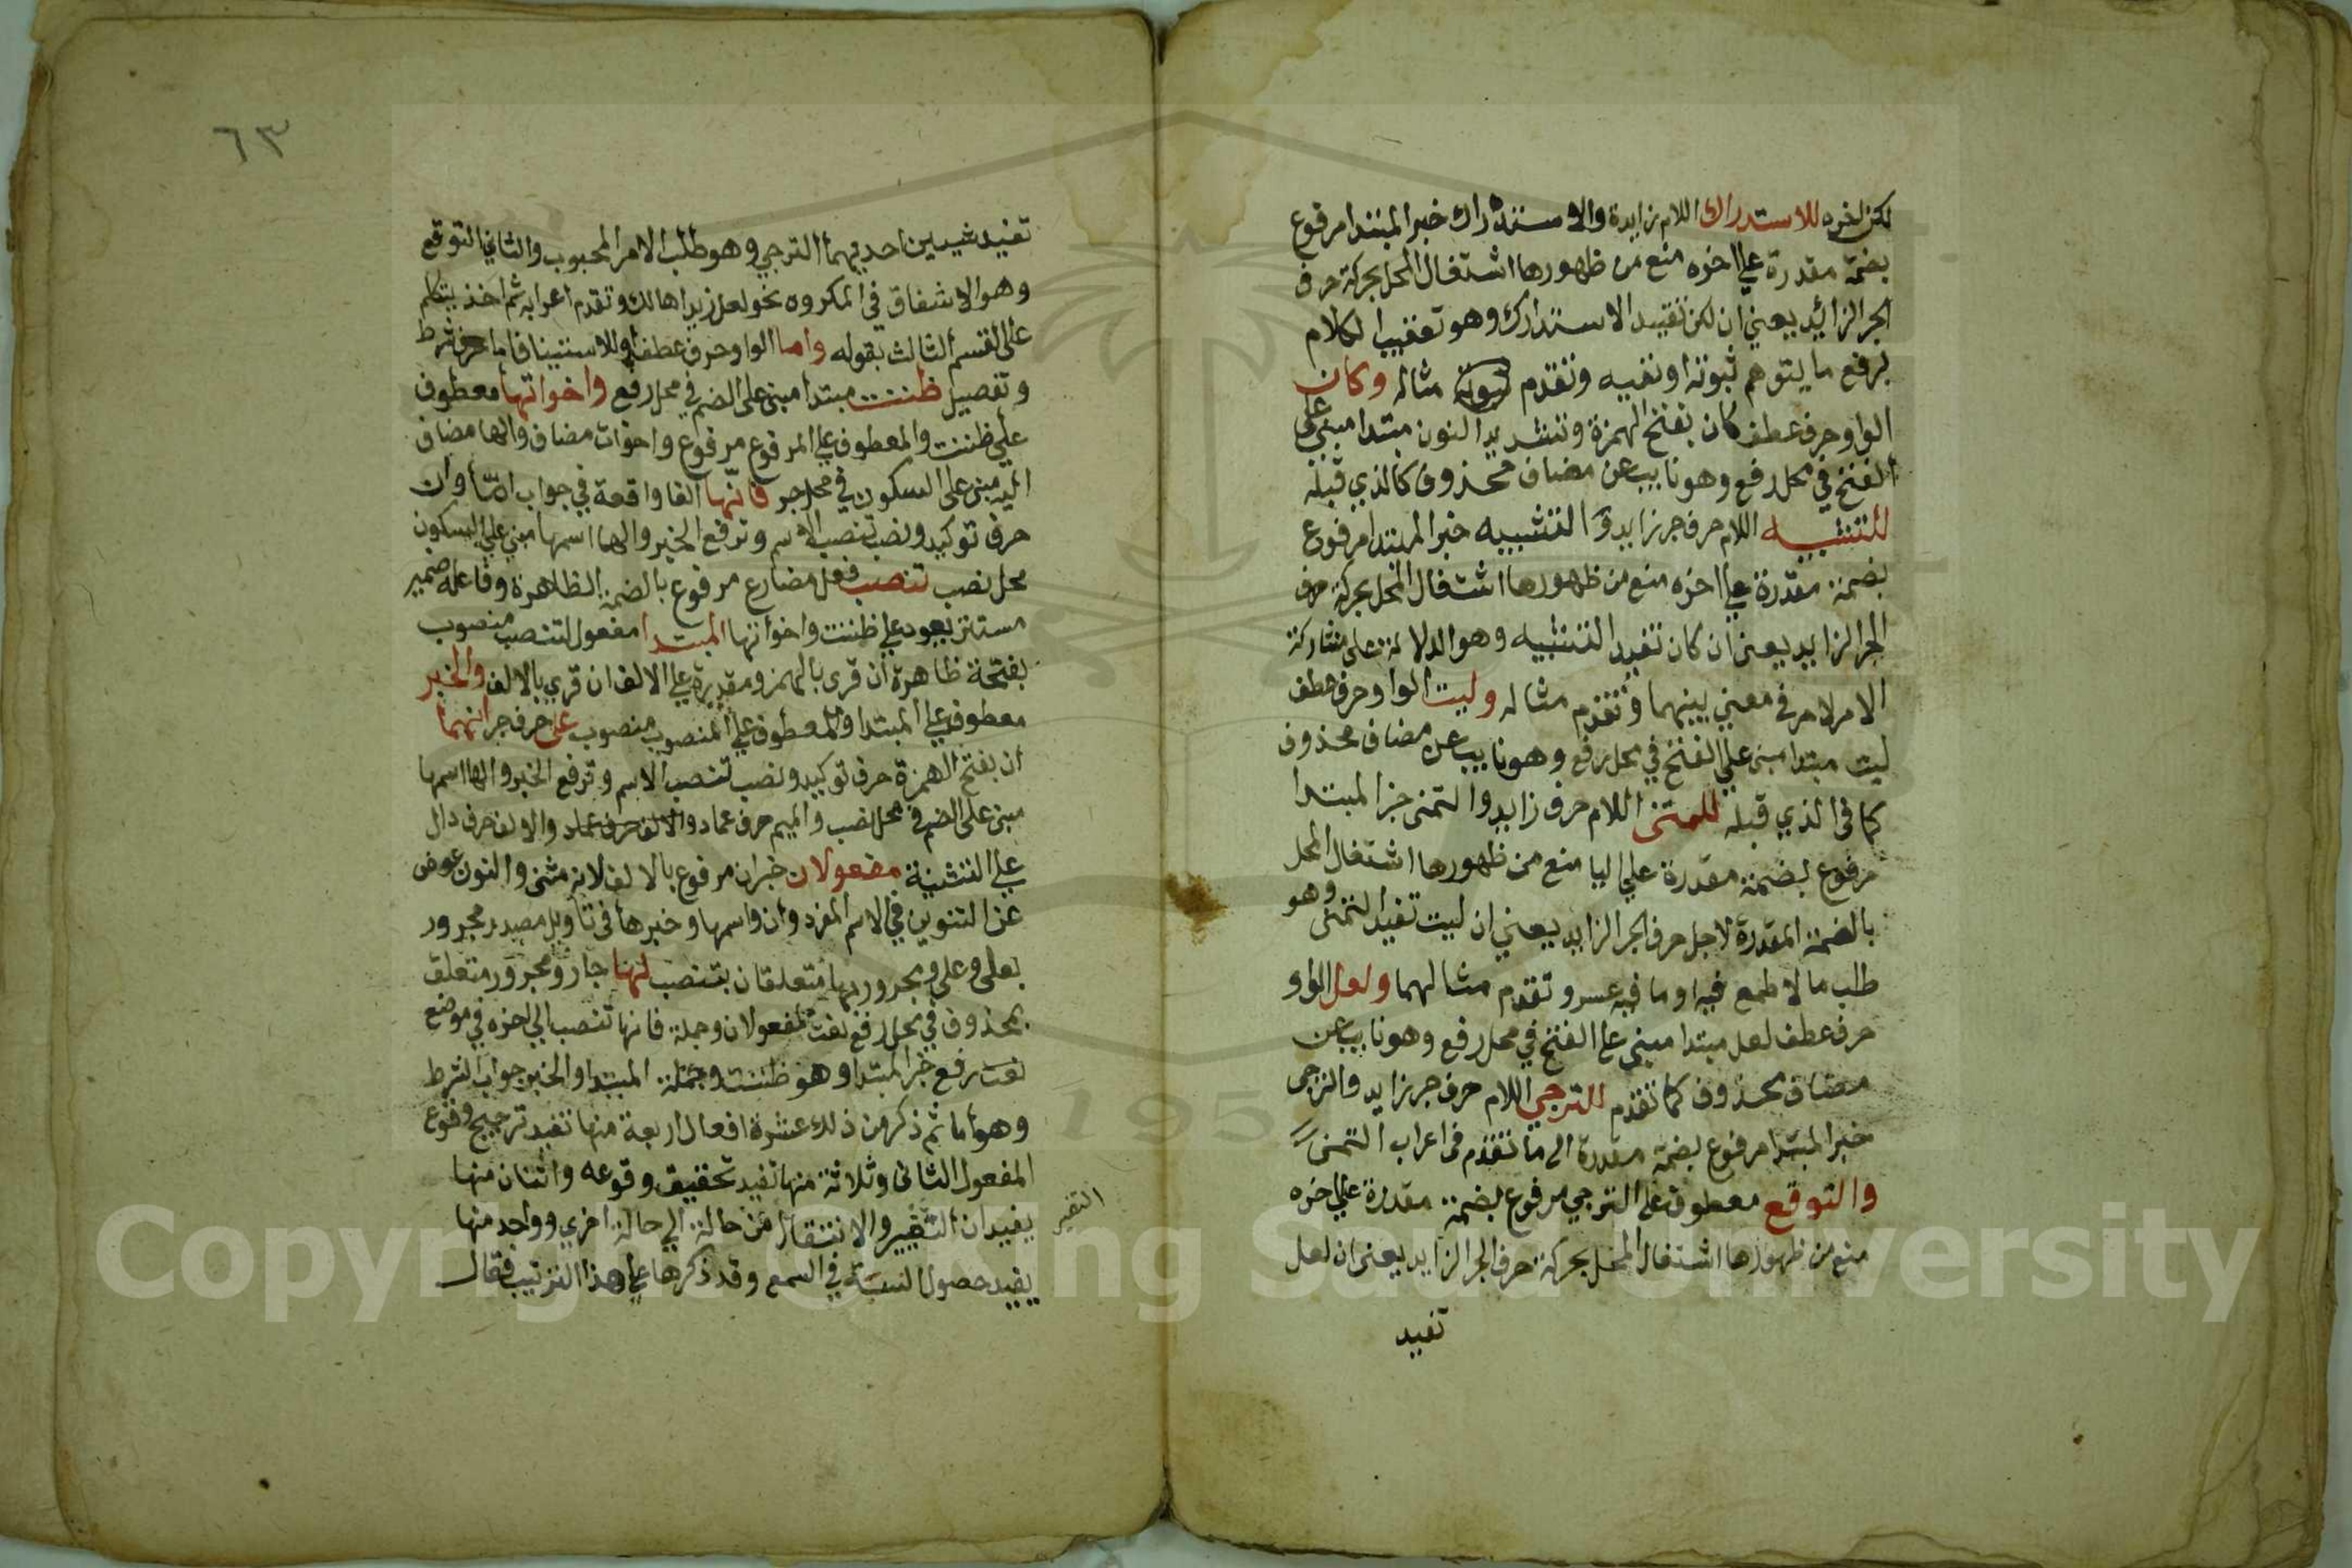 لكن لخره للاستدراك اللام زايدة والاستدراك خبر المبتدا مرفوع
بضمة مقدرة علي اخره منع من ظهورها اشتغال المحل بحركة حرف
الجر الزائد يعني ان لكن تفيد الاستدراك وهو تعقيب الكلام
برفع ما يتوهم ثبوته او نفيه وتقدم مثاله وكان
الواو حرف عطف كان بفتح الهمزة وتشديد النون مبتدا مبني علي
الفتح في محل رفع وهو نايب عن مضاف محذوف كالذي قبله
للتشبيه اللام حرف جر زايد والتشبيه خبر المبتدا مرفوع
بضمة مقدرة علي اخره منع من ظهورها اشتغال المحل بحركة حرف
الجر الزايد يعني ان كان تفيد التشبيه وهو الدلالة على مشاركة
الامر لامر في معني بينهما وتقدم مثاله وليت الواو حرف عطف
ليت مبتدا مبني علي الفتح في محل رفع وهو نايب عن مضاف محذوف
كما في الذي قبله للتمني اللام حرف زايد والتمني خبر المبتدا
مرفوع بضمة مقدرة علي اليا منع من ظهورها اشتغال المحل
بالضمة المقدرة لاجل حرف الجر الزايد يعني ان ليت تفيد التمني وهو
طلب ما لا طمع فيه او ما فيه عسر وتقدم مثالهما ولعل الواو
حرف عطف لعل مبتدا مبني علي الفتح في محل رفع وهو نايب عن
مضاف محذوف كما تقدم للترجي اللام حرف جر زايد والترجي
خبر المبتدا مرفوع بضمة مقدرة الى ما تقدم في اعراب التمني
والتوقع معطوف علي الترجي مرفوع بضمة مقدرة علي اخره
منع من ظهورها اشتغال المحل بحركة حرف الجر الزايد يعني ان لعل
تفيد
٦٣
تفيد شيين احديهما الترجي وهو طلب الامر المحبوب والثاني التوقع
وهو الاشفاق في المكروه نحو لعل زيدا هالك وتقدم اعرابه ثم اخذ يتكلم
على القسم الثالث بقوله واما الواو حرف عطف او للاستينافا ما حرف شرط
وتفصيل ظننت مبتدا مبني على الضم في محل رفع واخواتها معطوف
علي ظننت والمعطوف علي المرفوع مرفوع واخوات مضاف والها مضاف
اليه مبني على السكون في محل جر فانها الفا واقعة في جواب امّا وان
حرف توكيد ونصب تنصب الاسم وترفع الخبر والها اسمها مبني علي السكون
محل نصب تنصب فعل مضارع مرفوع بالضمة الظاهرة وفاعله ضمير
مستتر يعود علي ظننت واخواتها المبتدا مفعول لتنصب منصوب
بفتحة ظاهرة ان قري بالهمز ومقدرة علي الالف ان قري بالالف والخبر
معطوف علي المبتدا والمعطوف علي المنصوب منصوب على حرف جر انهما
ان بفتح الهمزة حرف توكيد ونصب تنصب الاسم وترفع الخبر والها اسمها
مبني على الضم في محل نصب والميم حرف عماد والالف حرف عماد والالف حرف دال
علي التثنية مفعولان خبر ان مرفوع بالالف لانه مثنى والنون عوض
عن التنوين في الاسم المفرد وان واسمها وخبرها في تاويل مصدر مجرور
بعلى وعلى ومجرورها متعلقان بتنصب لها جار ومجرور متعلق
بمحذوف في محل رفع نعت لمفعولان وجملة فانها تنصب الي اخره في موضع
نعت رفع خبر المبتدا وهو ظننت وجملة المبتدا والخبر جواب الشرط
وهو اما ثم ذكر من ذلك عشرة افعال اربعة منها تفيد ترجيح وقوع
المفعول الثاني وثلاثة منها تفيد تحقيق وقوعه واثنان منها
يفيدان التغيير والانتقال من حالة الي حالة اخري وواحد منها
يفيد حصول النسبة في السمع وقد ذكرها علي هذا الترتيب فقال
التغير
Copyright © King Saud University
195